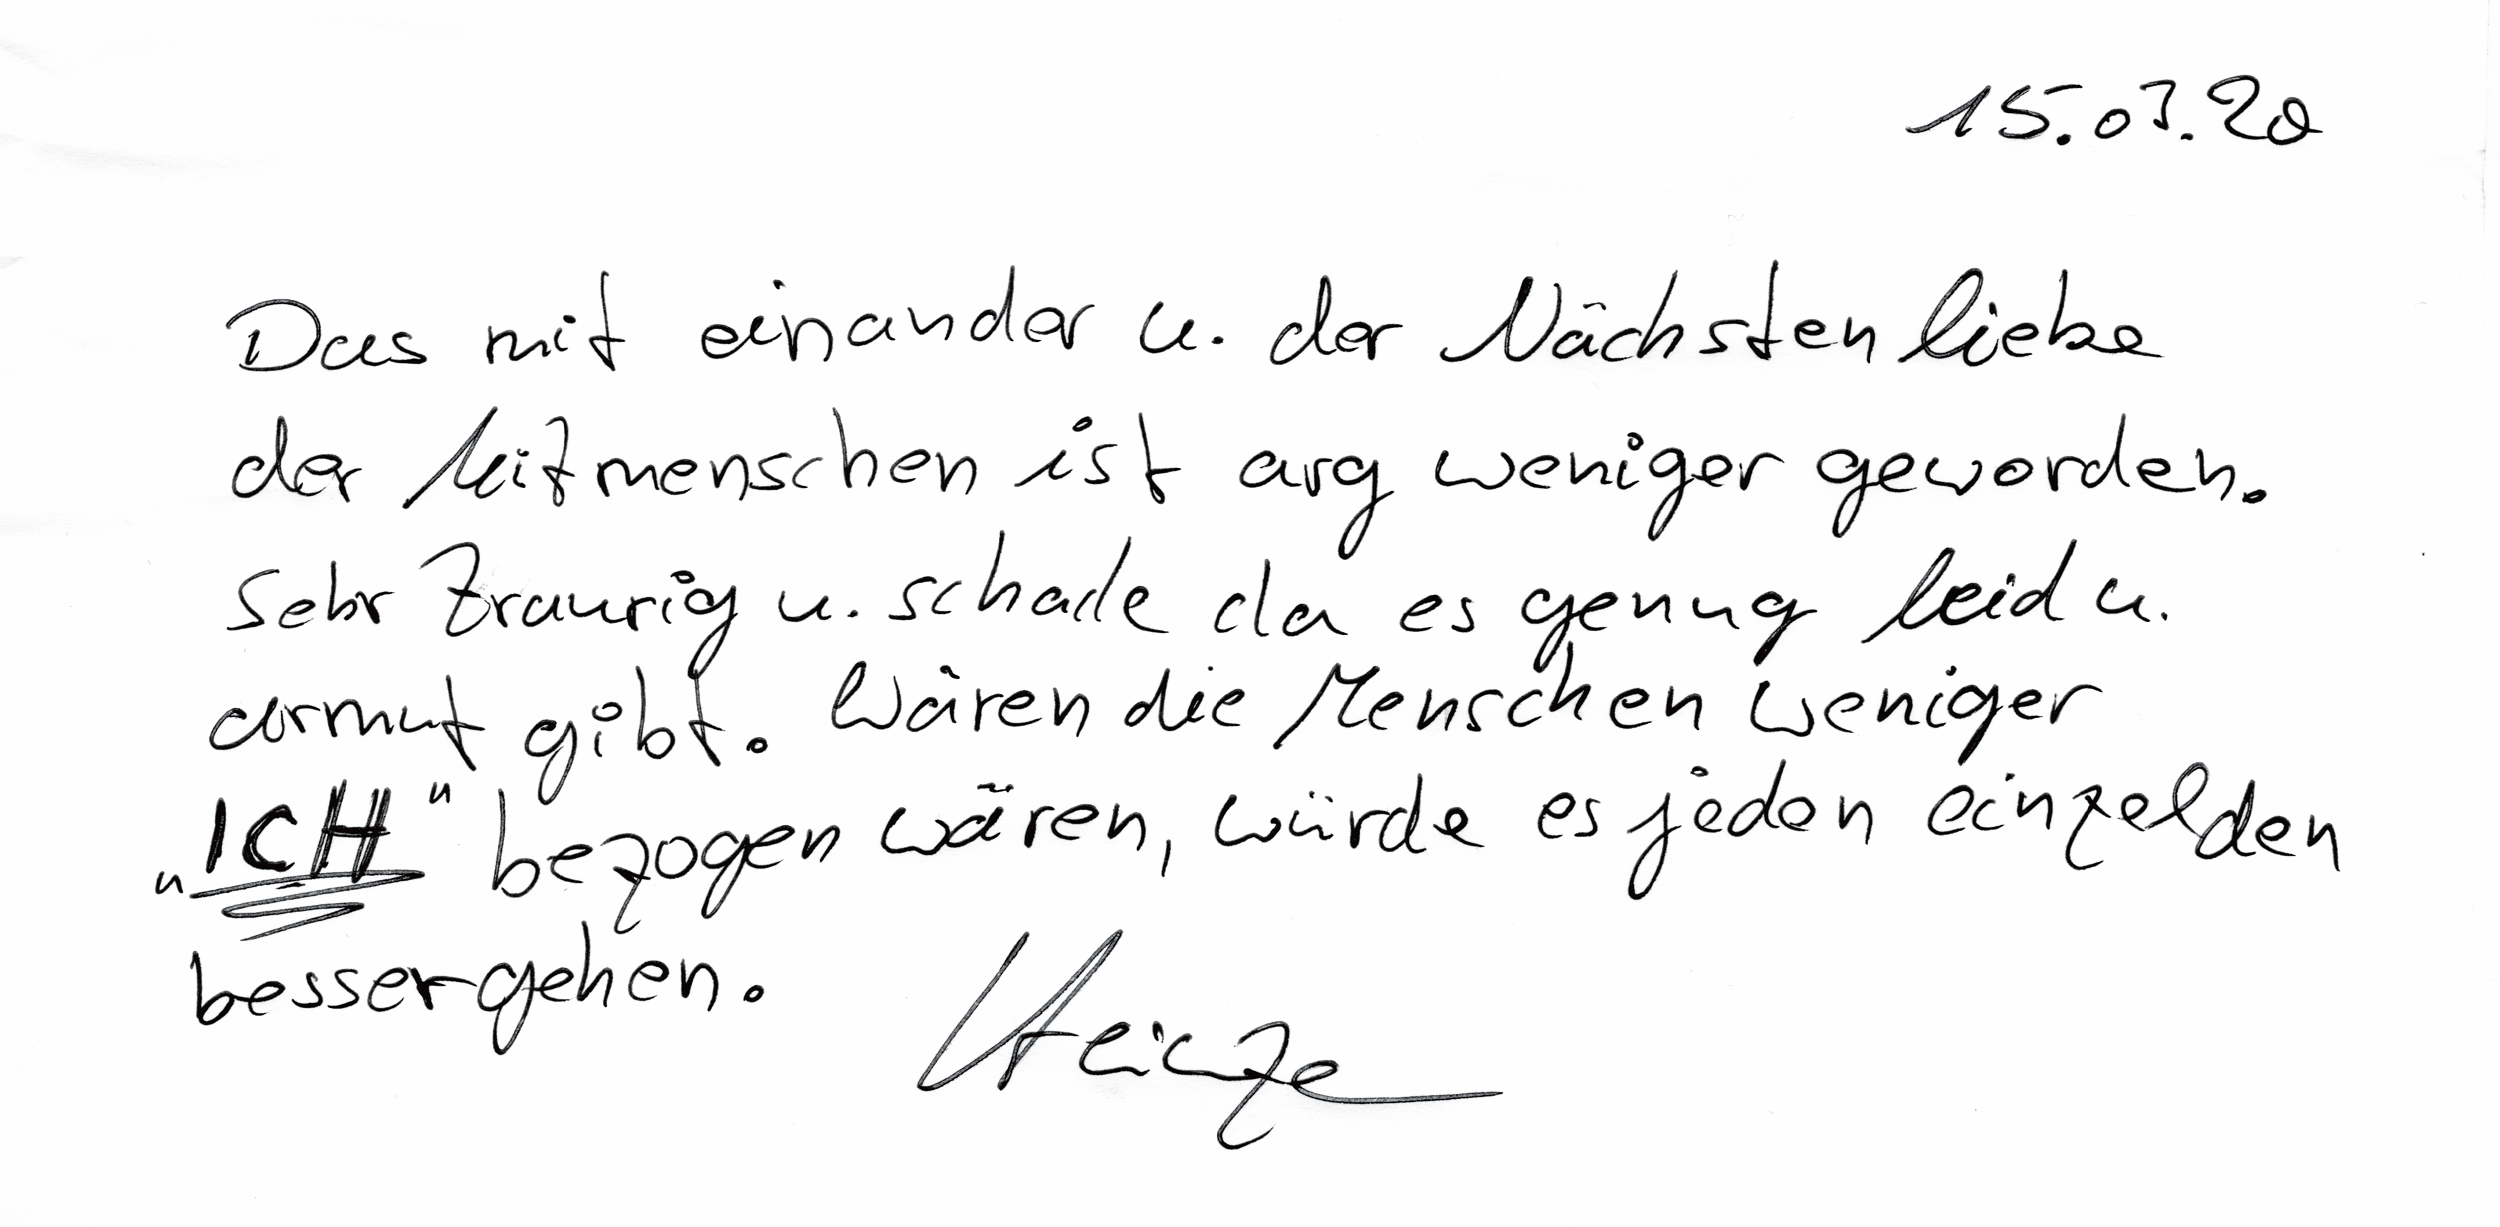 15.03.20
Das mit einander u. der Nächsten liebe
der Mitmenschen ist arg weniger geworden.
Sehr traurig u. schade da es genug leid u.
armut gibt. Wären die Menschen weniger
"ICH" bezogen wären, würde es jeden einzelden
besser gehen.
Heinze